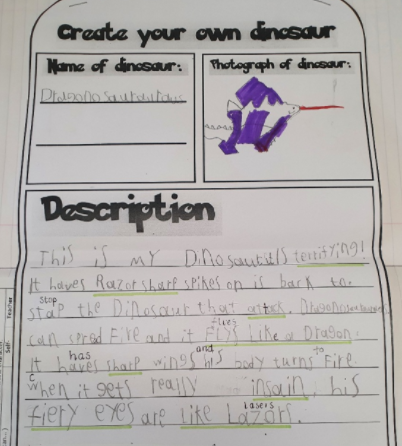 Create your own dinosaur
Name of dinosaur:
Photograph of dinosaur:
Description
This is my Dinosaur its terrifying!
It haves Razor sharp spikes on is back to.
stop
stap the Dinosaur that attack.
flies
can spred Fire and it Flys like a Dragon.
has and to
It haves sharp wings his body turns Fire.
when it gets really insain, his
lasers
fiery eyes are like Lazors.
Teacher
Self